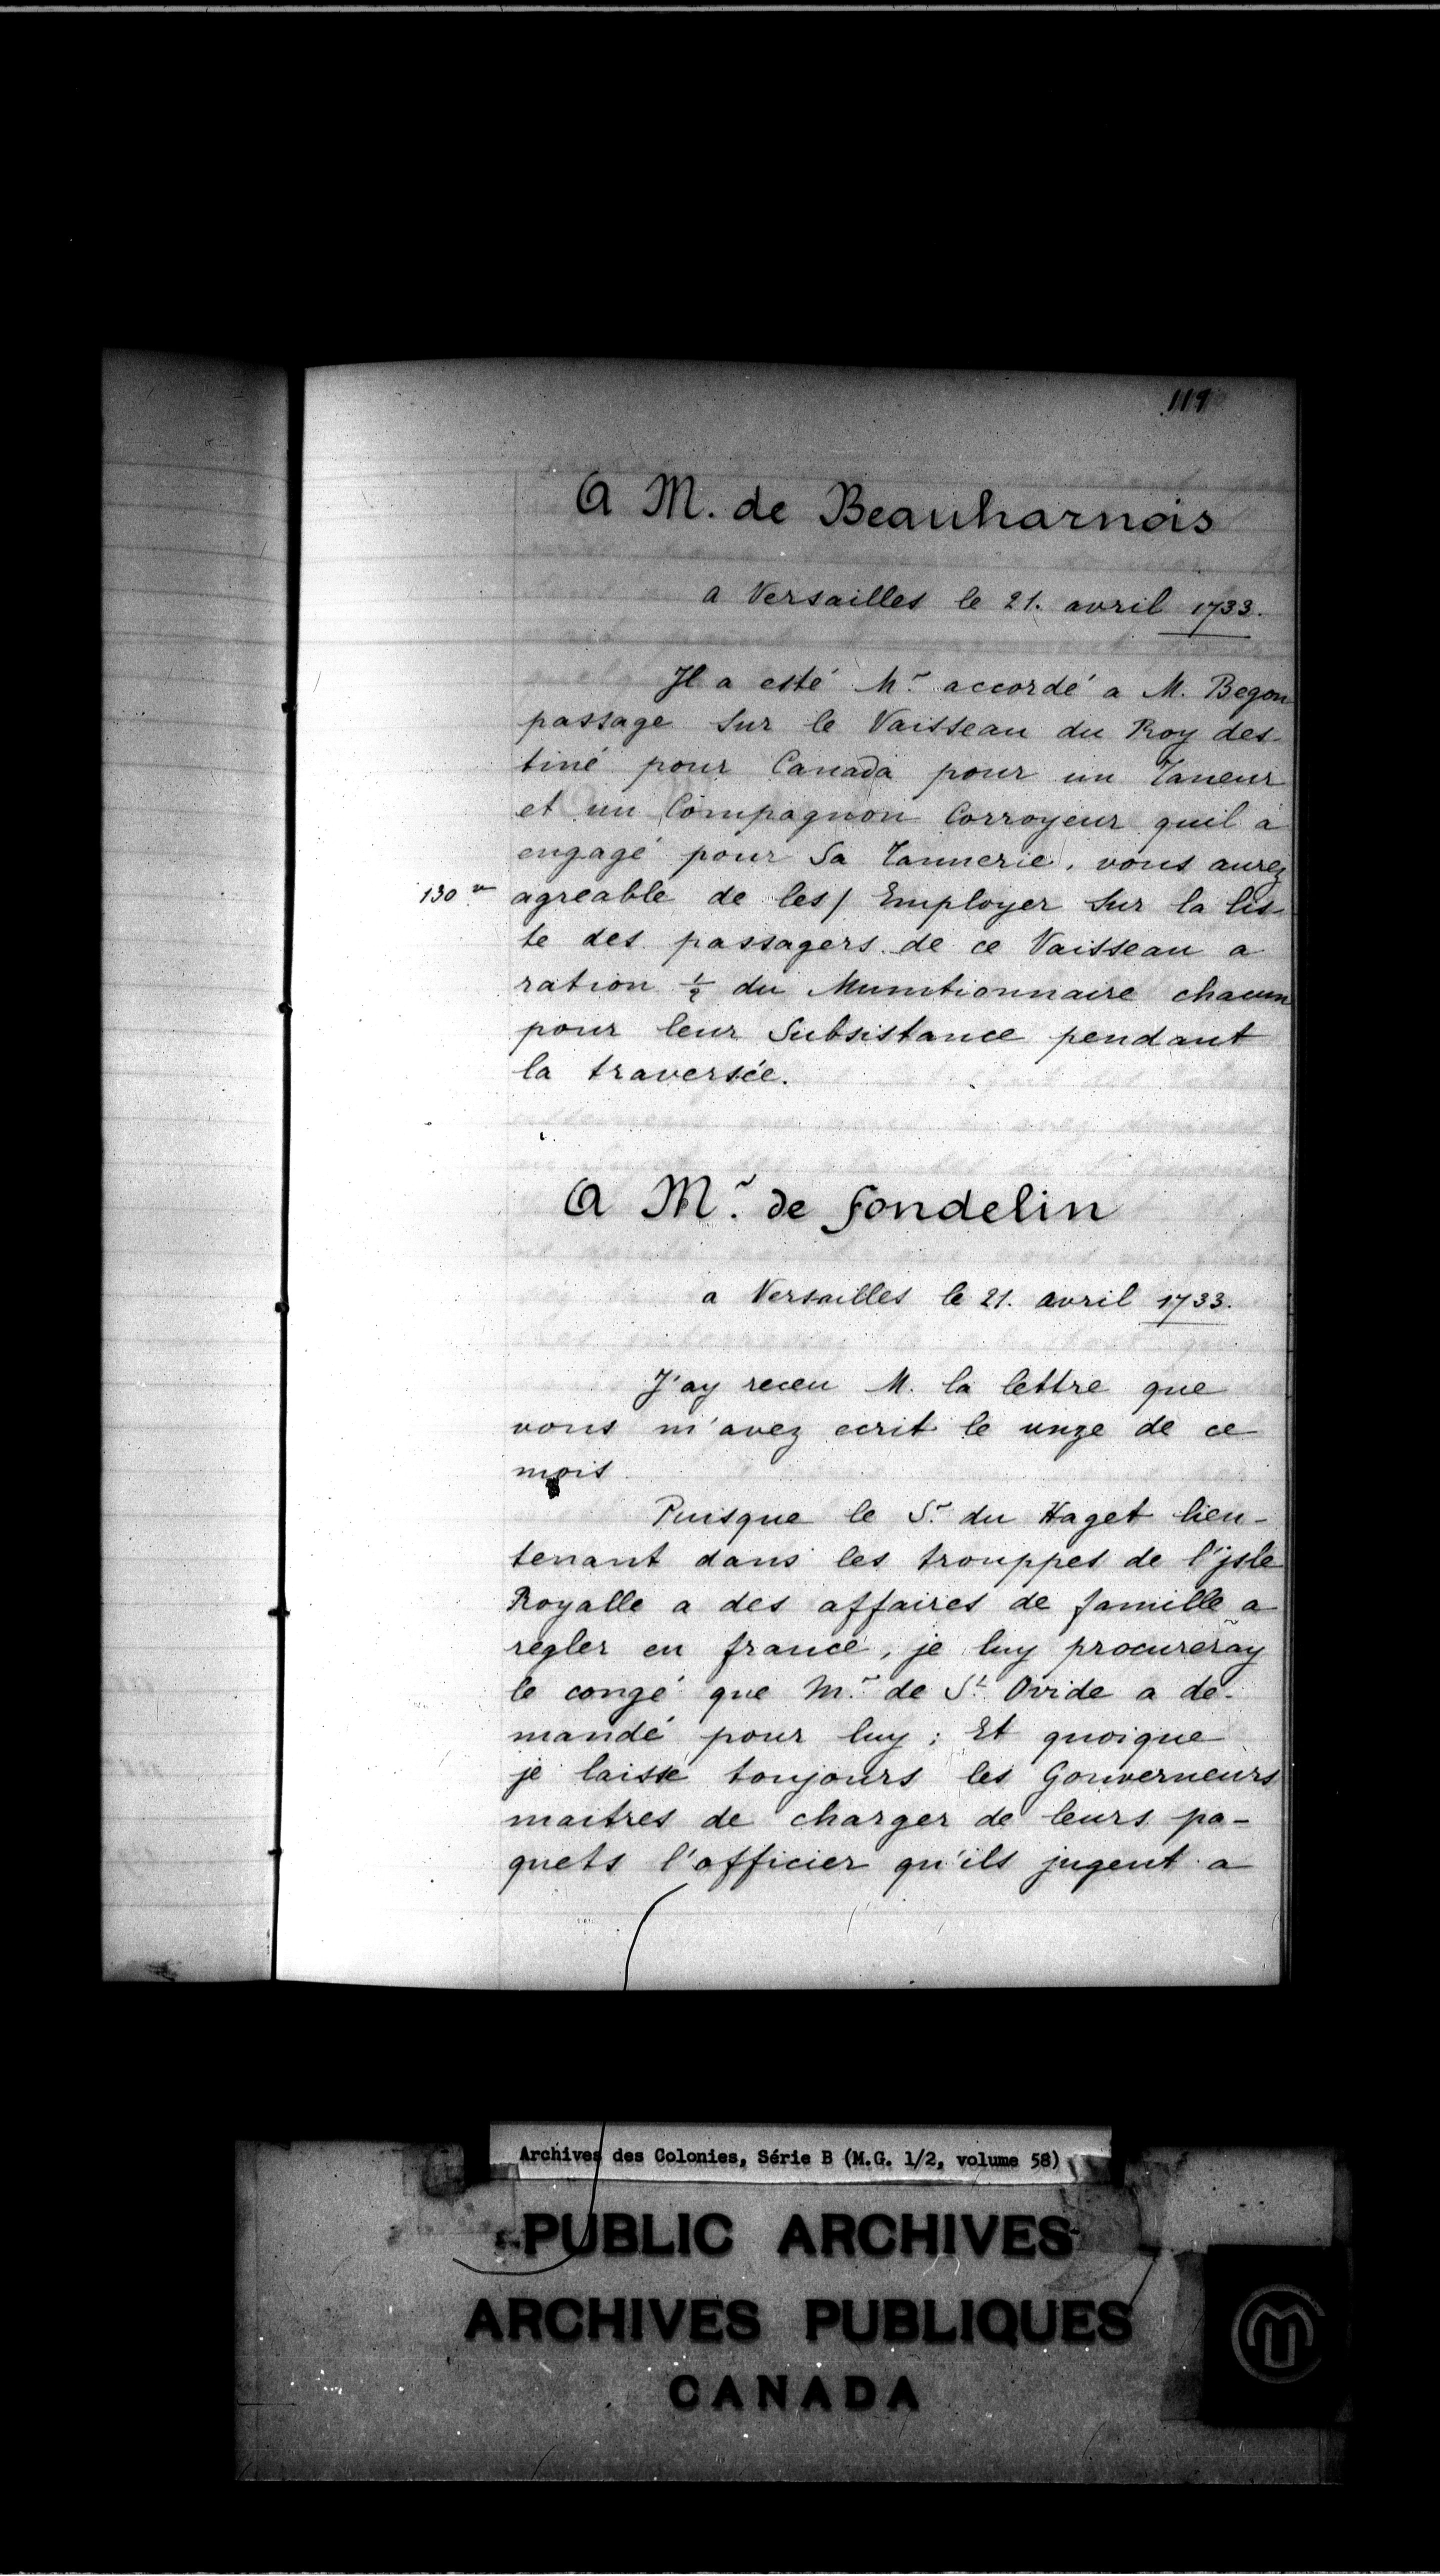 119
A M. de Beauharnois
a Versailles le 21. avril 1733.
Il a esté Mr accordé a M. Begon
passage sur le Vaisseau du Roy des-
tiné pour Canada pour un Taneur
et un Compagnon Corroyeur quil a
engagé pour Sa Tannerie, vous aurez
130 v agreable de les/ Employer sur la lis-
te des passagers de ce Vaisseau a
ration ½ du Munitionnaire chacun
pour leur Subsistance pendant
la traversée.
A Mr. de fondelin
a Versailles le 21. avril 1733.
J'ay receu M. la lettre que
vous m'avez ecrit le unze de ce
mois
Puisque le Sr. du Haget lieu-
tenant dans les trouppes de l'jsle
Royalle a des affaires de famille a
regler en france, je luy procureray
le congé que Mr. de St. Ovide a de-
mandé pour luy ; Et quoique
je laisse toujours les Gouverneurs
maitres de charger de leurs pa-
quets l'officier qu'ils jugent a
Archives des Colonies, Série B (M.G. 1/2, volume 58)
PUBLIC ARCHIVES
ARCHIVES PUBLIQUES
CANADA